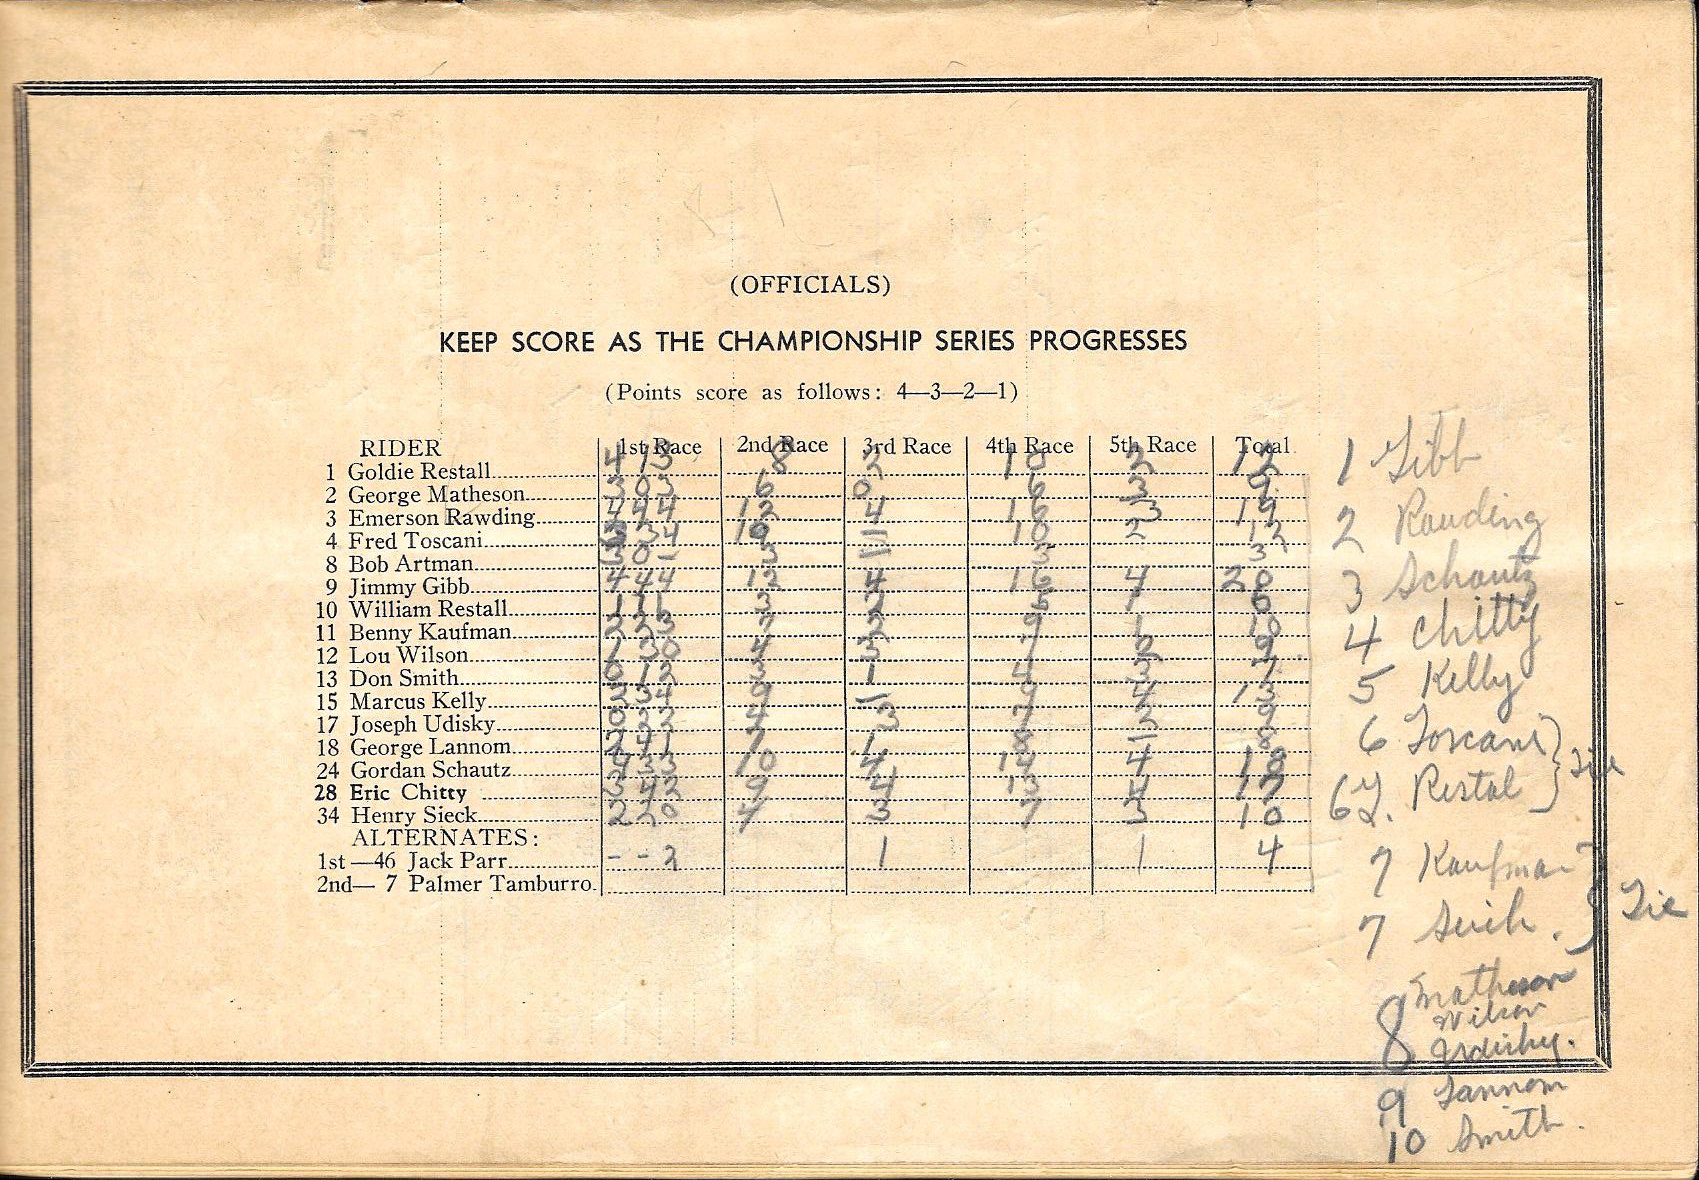 (OFFICIALS)
KEEP SCORE AS THE CHAMPIONSHIP SERIES PROGRESSES
(Points score as follows: 4—3—2—1)
RIDER 1st Race 2nd Race 3rd Race 4th Race 5th Race Total
1 Goldie Restall 4 1 3 8 2 10 2 12
2 George Matheson 3 0 3 6 0 6 3 9
3 Emerson Rawding 4 4 4 12 4 16 3 19
4 Fred Toscani 3 4 10 10 2 12
8 Bob Artman 3 0 - 3 3 3
9 Jimmy Gibb 4 4 4 12 4 16 4 20
10 William Restall 1 1 1 3 2 1
11 Benny Kaufman 2 2 3 7 2 9 1 10
12 Lou Wilson 1 3 0 4 3 7 2 9
13 Don Smith 0 1 2 3 1 4 3 7
15 Marcus Kelly 2 3 4 9 9 4 13
17 Joseph Udisky 0 2 2 4 3 7 2 9
18 George Lannom 2 4 1 7 1 8 8
24 Gordan Schautz 4 3 3 10 4 14 4 18
28 Eric Chitty 3 4 2 9 4 13 4 17
34 Henry Sieck 2 2 0 4 3 7 3 10
ALTERNATES:
1st—46 Jack Parr - - 2 1 1 4
2nd— 7 Palmer Tamburro
1 Gibb
2 Rawding
3 Schautz
4 Chitty
5 Kelly
6 Toscani
6 G. Restal } Tie
7 Kaufman
7 Seich. } Tie
8 Matheson
Wilson
Udisky.
9 Lannom
10 Smith.